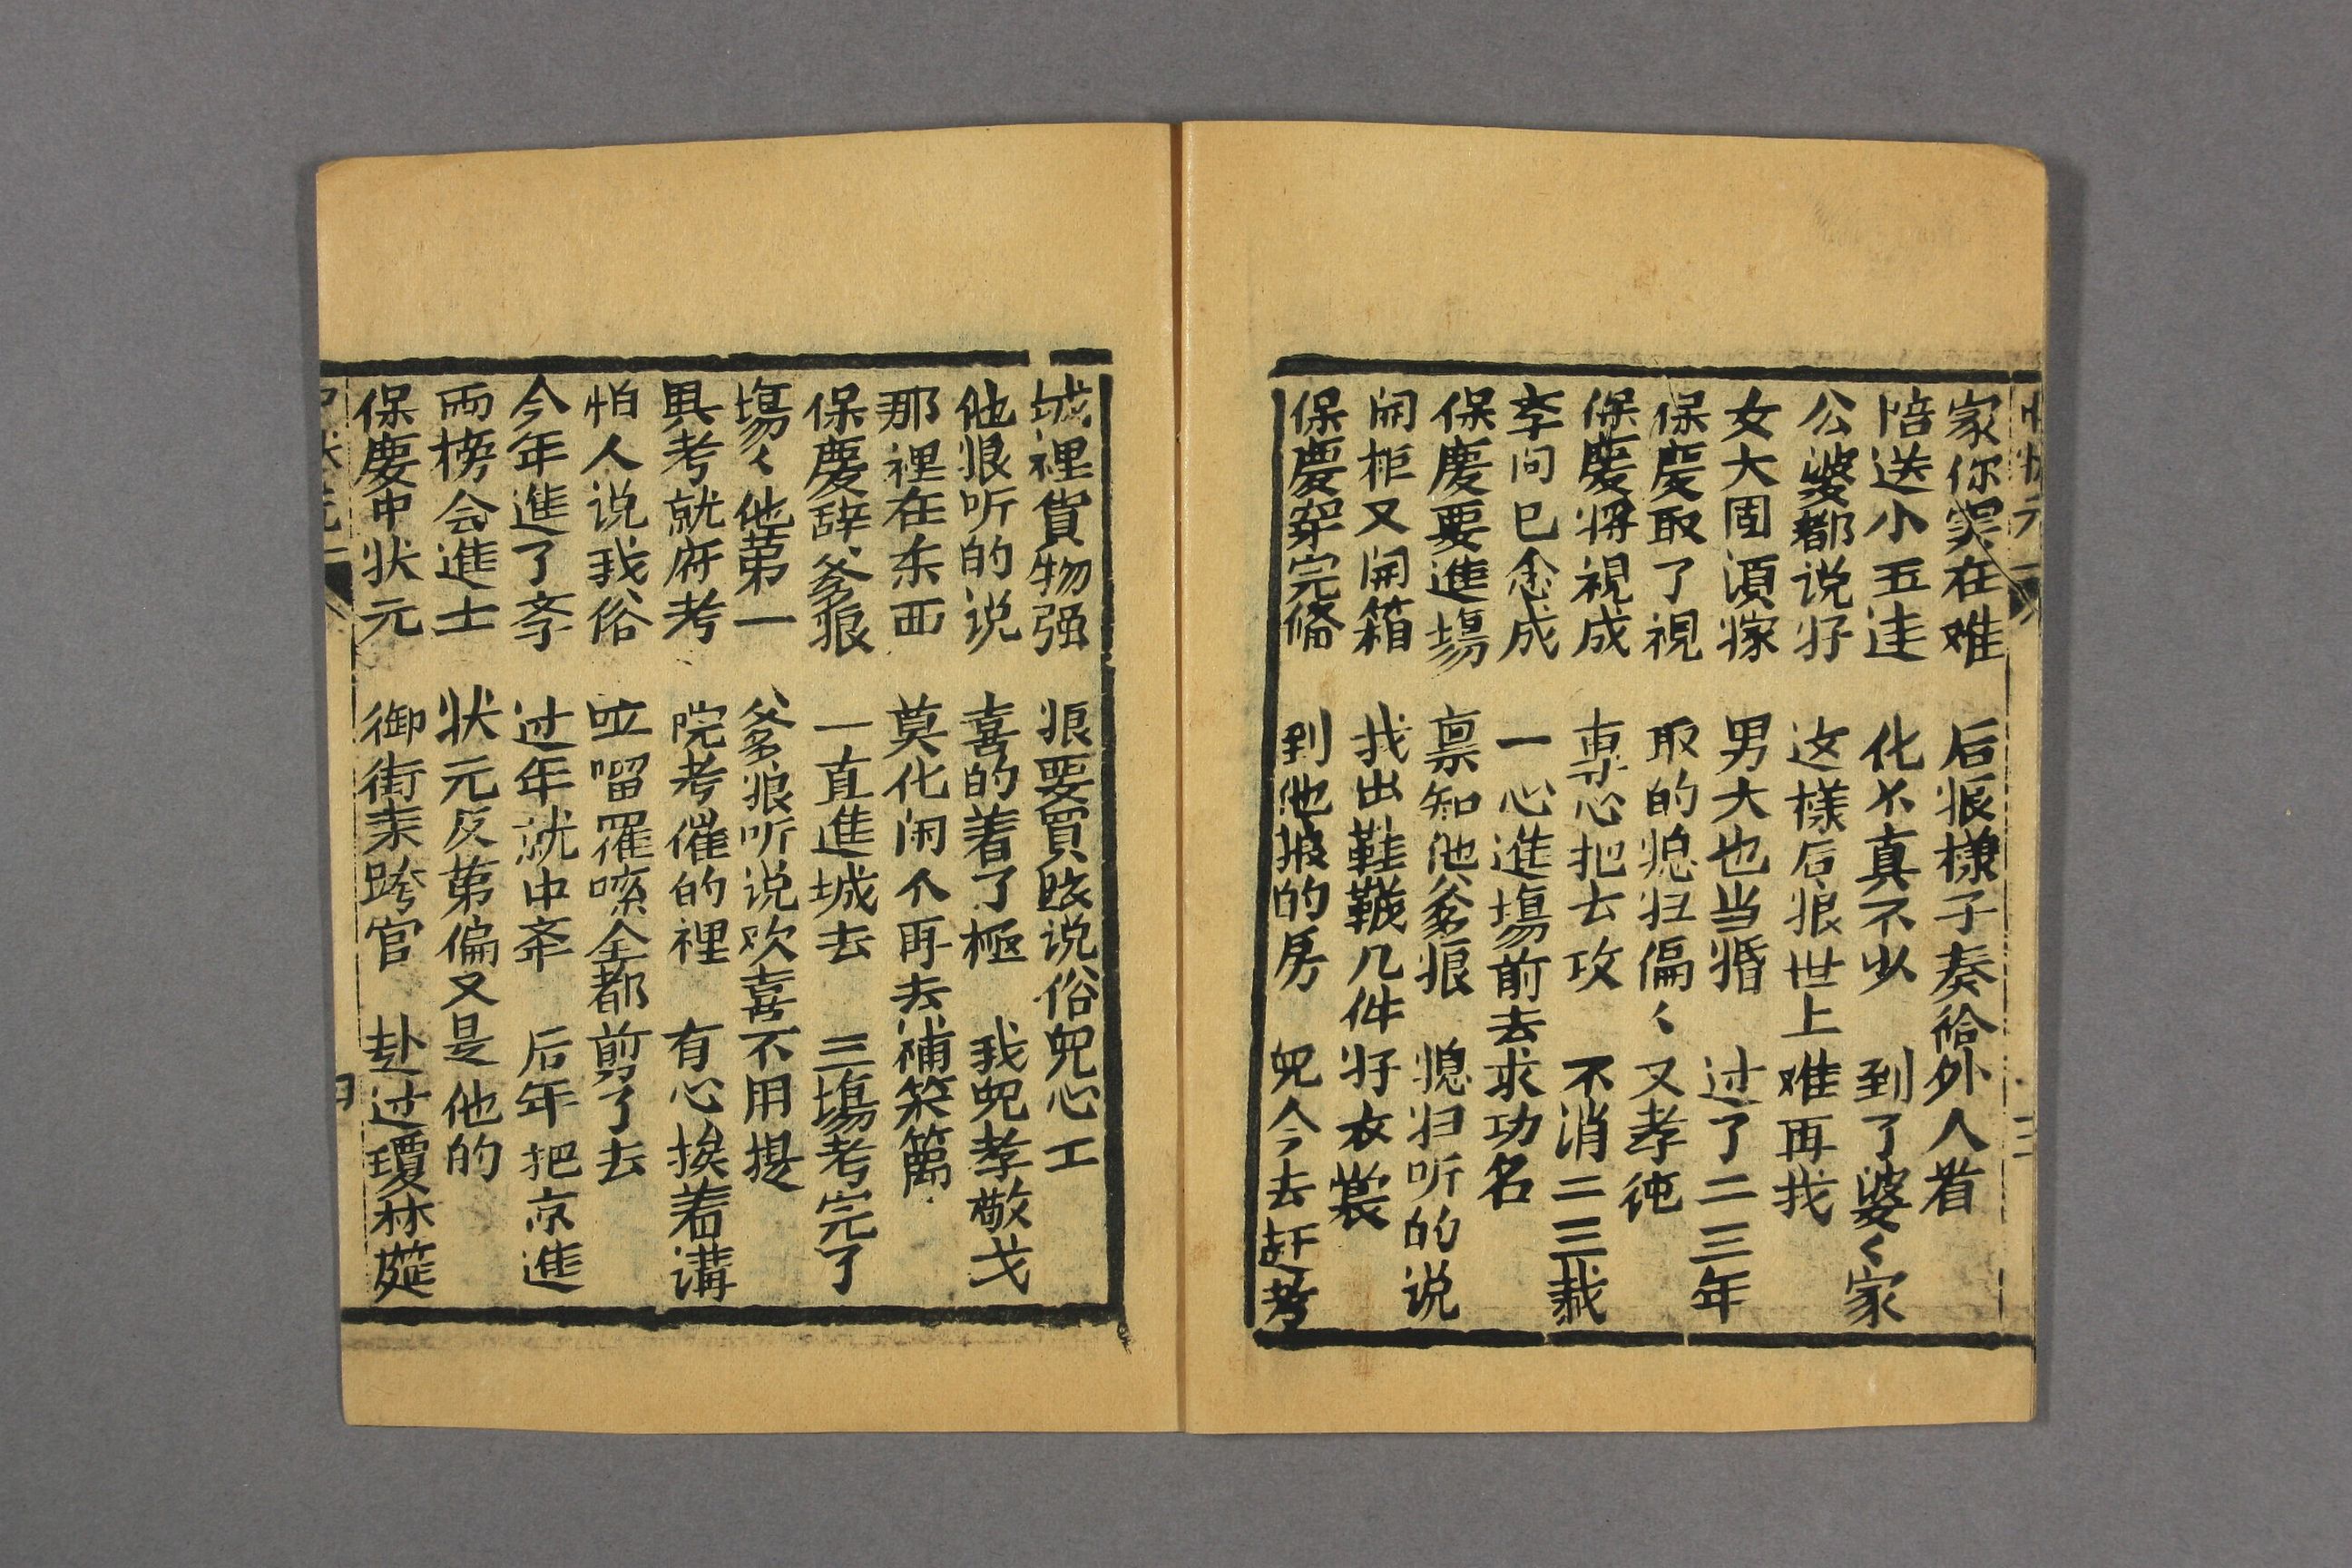 家你实在难　后狠様子奏給外人看
陪送小五迬　化不真不少　到了婆〻家
公婆都说好　这樣后狼世上难再找
女大固湏嫁　男大也当婚　过了二三年
保慶取了視　取的媳归偏〻又孝純
保慶将視成　專心把去攻　不消二三載
李问已念成　一心進塲前去求功名
保慶要進塲　禀知他爹狠　媳归听的说
闹柜又開箱　找出鞋韈几件好衣裳
保慶穿完俻　到他狼的房　兒今去赶考
城裡貨物强　狠要買啥说俗兒心工
他狠听的说　喜的着了極　我兒孝敬戈
那裡在东西　莫化闲个再去補笨篱
保慶辞爹狼　一直進城去　三塲考完了
塲〻他第一　爹狼听说欢喜不用提
具考就府考　院考催的裡　有心挨着講
怕人说我俗　啦㗰罹嗦全都剪了去
今年進了斈　过年就中斈　后年把京進
両榜会進士　状元反第偏又是他的
保慶中状元　御街来跨官　赴过瓊林筵